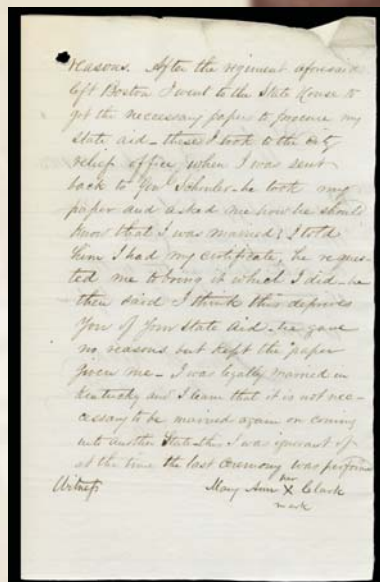 reasons. After the regiment aforesaid
left Boston I went to the State House to
get the necessary paper to procure my
State aid - these I took to the City
relief office, when I was sent
back to Genl Schouler - he took my
paper and asked me how he should
know that I was married? I told
him I had my certificate, he reques-
ted me to bring it which I did - he
then said I think this deprives
you of your State aid - he gave
no reasons but kept the paper
given me - I was legally married in
Kentucky and I learn that it is not nec-
cessary to be married again on coming
into another State - this I was ignorant of
at the time the last ceremony was performed
Witness Mary Ann her X mark Clark